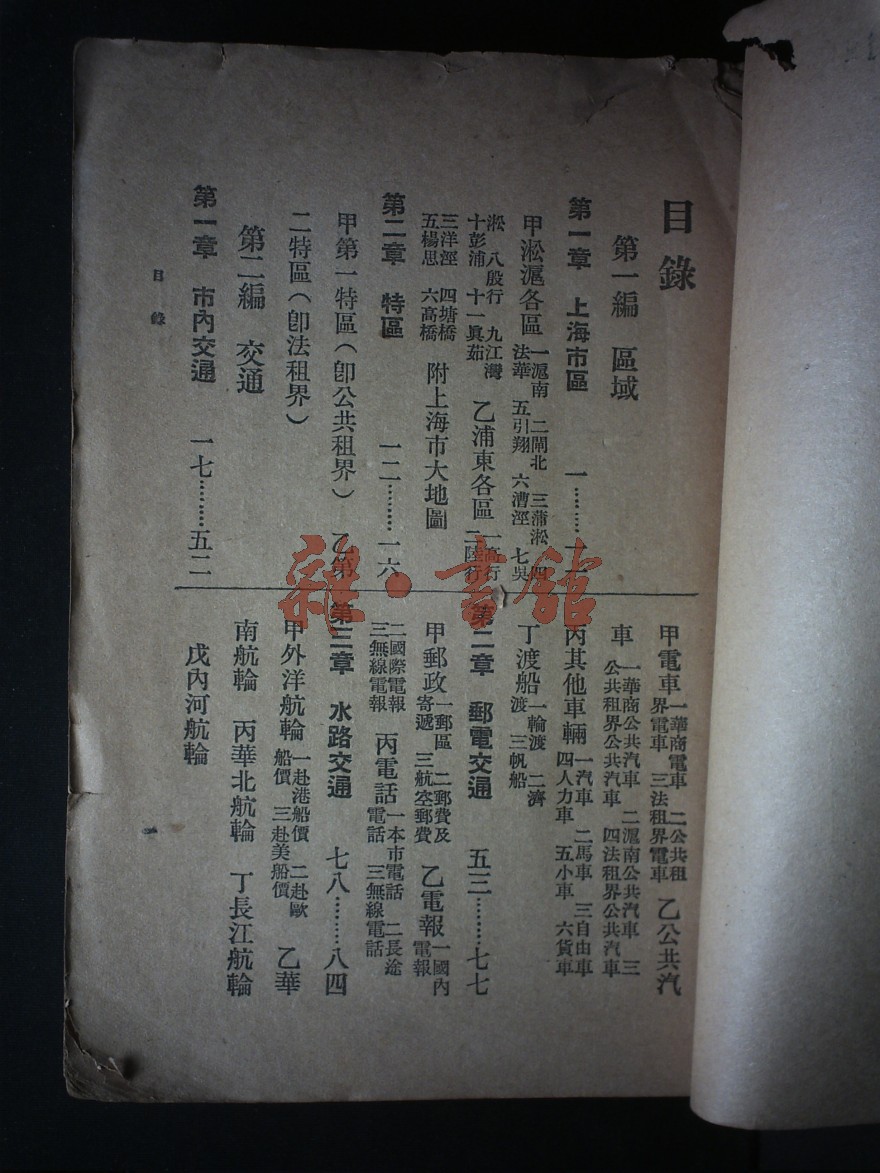 目錄
第一編　區域
第一章　上海市區　一………一
甲淞滬各區　一滬南　二閘北　三蒲淞　四法華　五引翔　六漕涇　七吳
淞　八殷行　九江灣　十彭浦　十一眞茹　乙浦東各區　一高行　二陸行
三洋涇　四塘橋　五楊思　六高橋　附上海市大地圖
第二章　特區　一二………一六
甲第一特區（卽公共租界）　乙第
二特區（卽法租界）
第二編　交通
第一章　市內交通　一七………五二
甲電車　一華商電車　二公共租界電車　三法租界電車　乙公共汽
車　一華商公共汽車　二滬南公共汽車　三公共租界公共汽車　四法租界公共汽車
丙其他車輛　一汽車　二馬車　三自由車　四人力車　五小車　六貨車
丁渡船　一輪渡　二濟渡　三帆船
第二章　郵電交通　五三………七七
甲郵政　一郵區　二郵費及寄遞　三航空郵費　乙電報　一國內電報
二國際電報　三無線電報　丙電話　一本市電話　二長途電話　三無線電話
第三章　水路交通　七八………八四
甲外洋航輪　一赴港船價　二赴歐船價　三赴美船價　乙華
南航輪　丙華北航輪　丁長江航輪
戊內河航輪
目錄
一
雜·書館